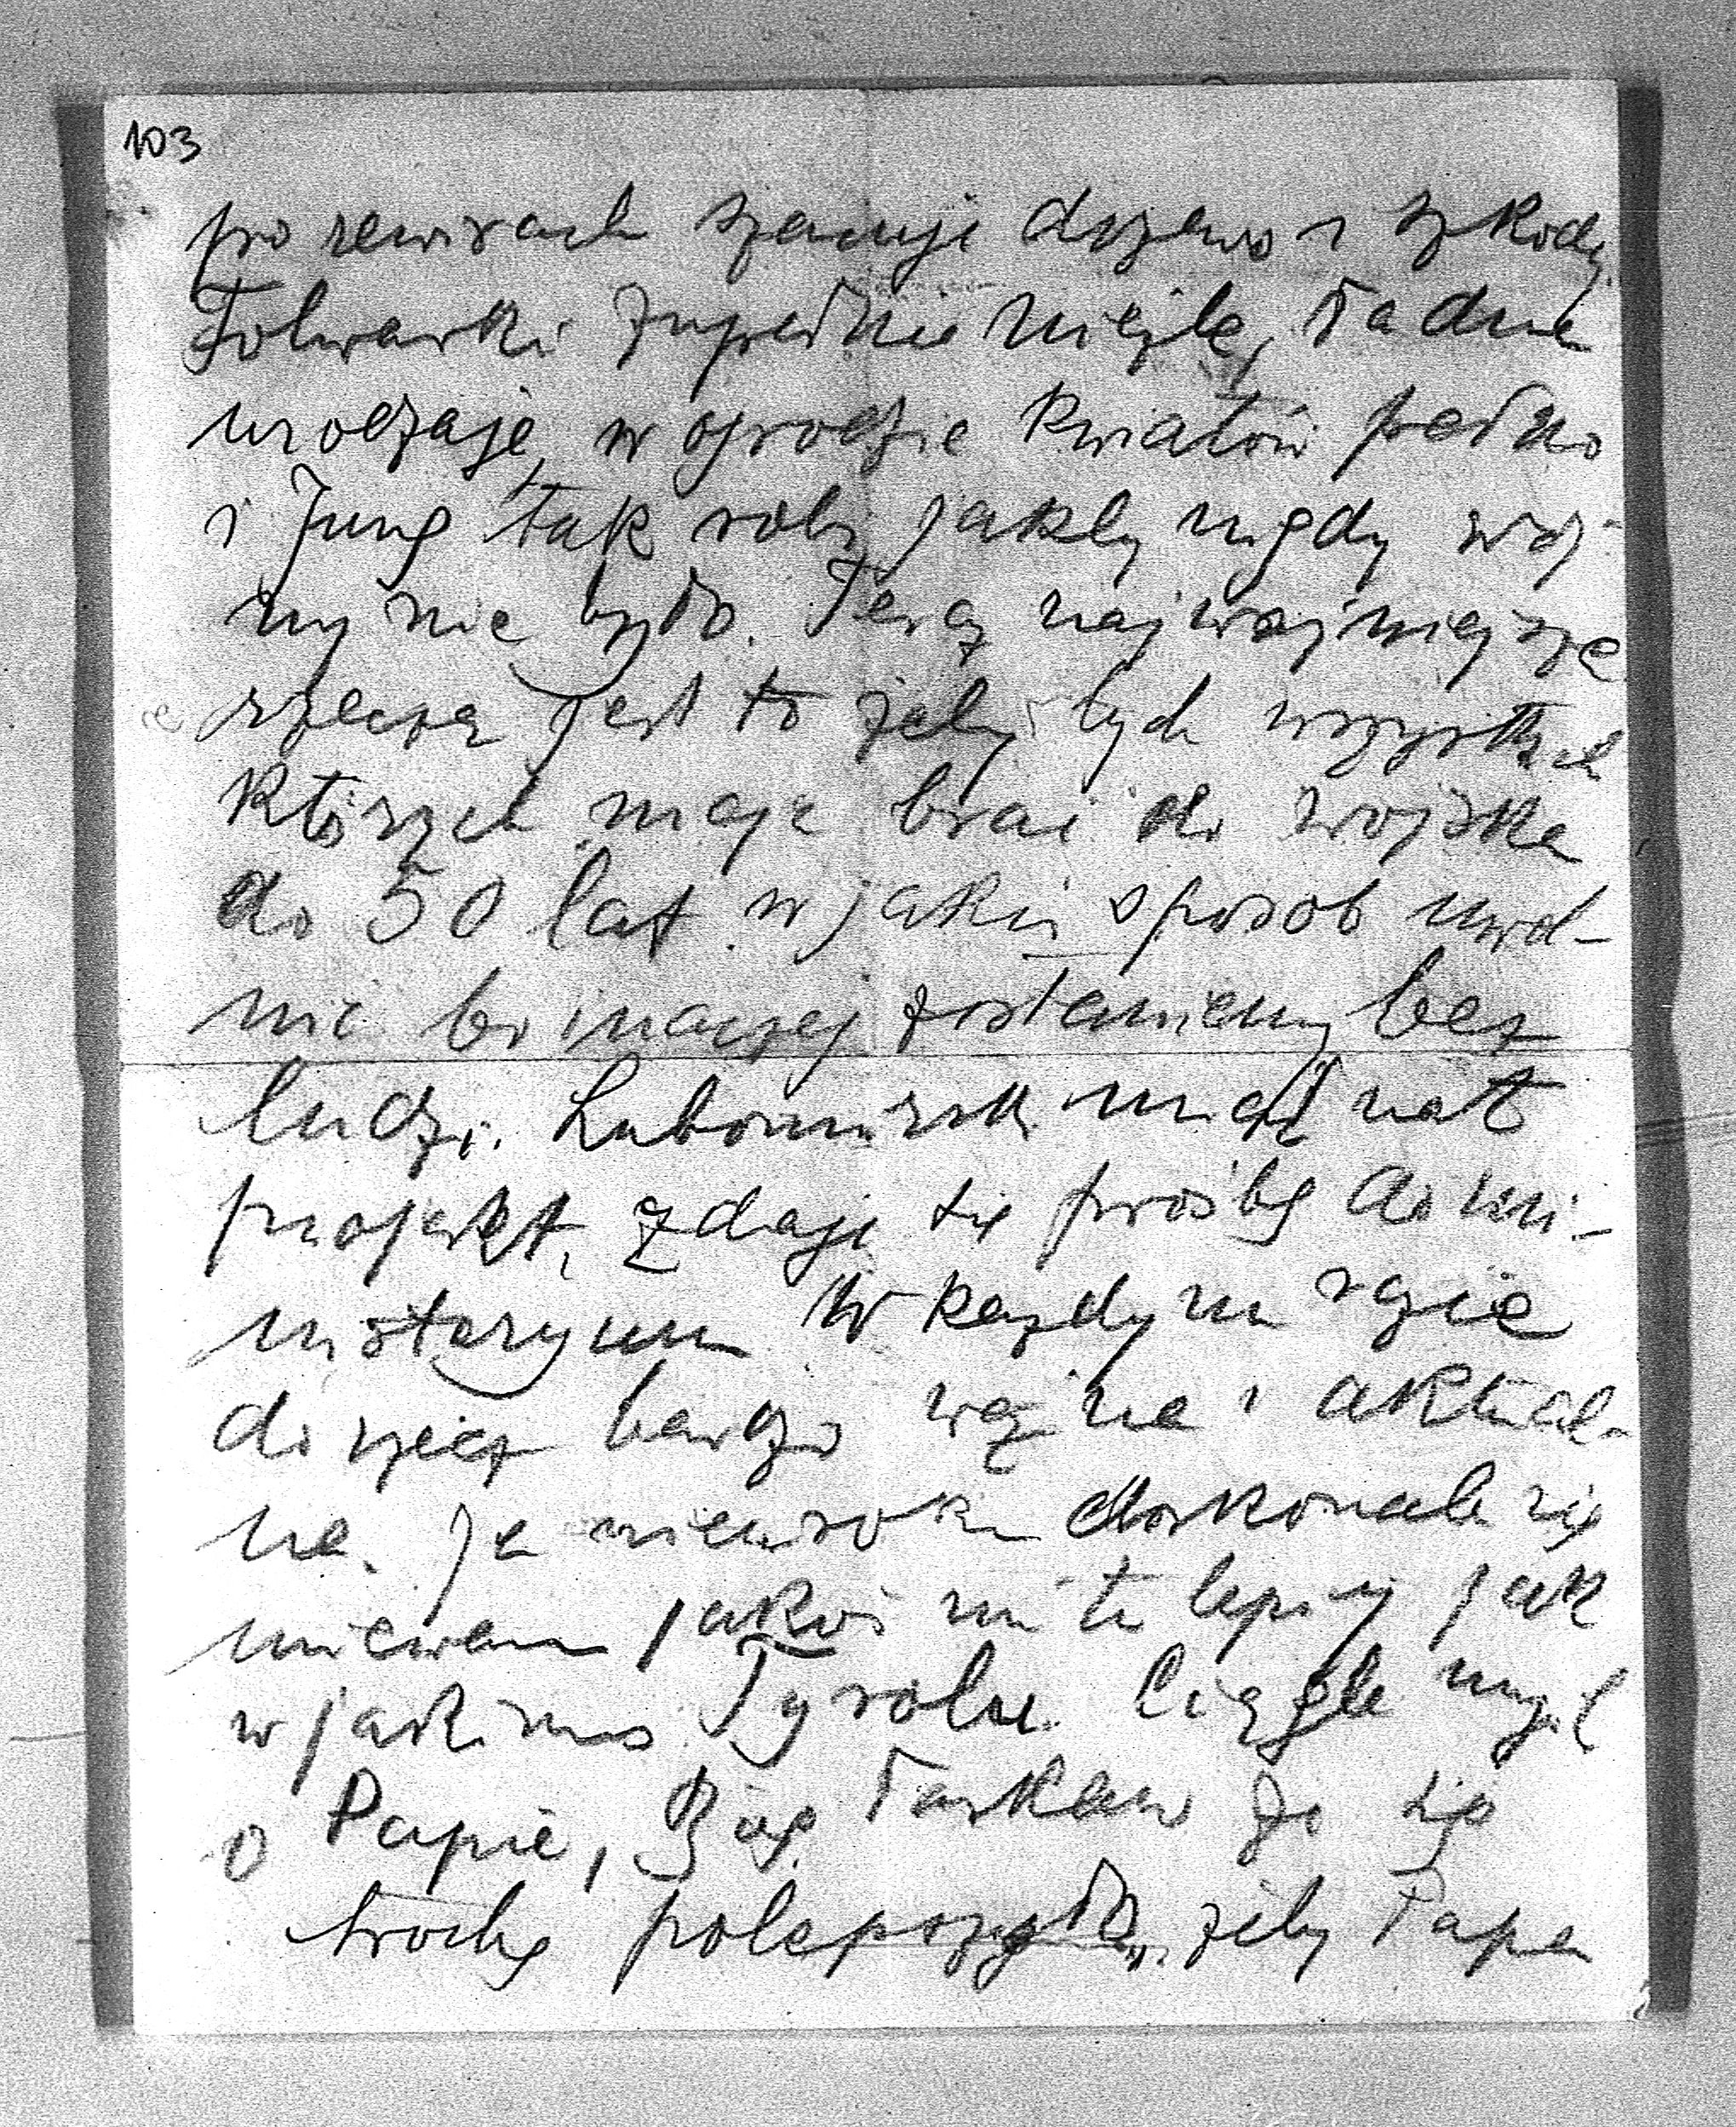 103
po rewirach szacuje drzewo i szkody.
Folwarki zupełnie nieźle, ładne
urodzaje, w ogrodzie kwiatów pełno
i Jung tak robi jakby nigdy woj-
ny nie było. Teraz najważniejszą
rzeczą jest to żeby tych wszystkich
których mają brać do wojska
do 50 lat w jakiś sposób uwol-
nić bo inaczej zostaniemy bez
ludzi. Lubomirski miał
projekt, zdaje się prośbę do mi-
nisteryum. W każdym razie
to rzecz bardzo ważna i aktual-
na. Ja doskonale się
miewam jakoś mi tu lepiej jak
w jakimś Tyrolu. Ciągle myśl
o Papie, Bóg łaskaw że się
trochę polepszyło, żeby Papa